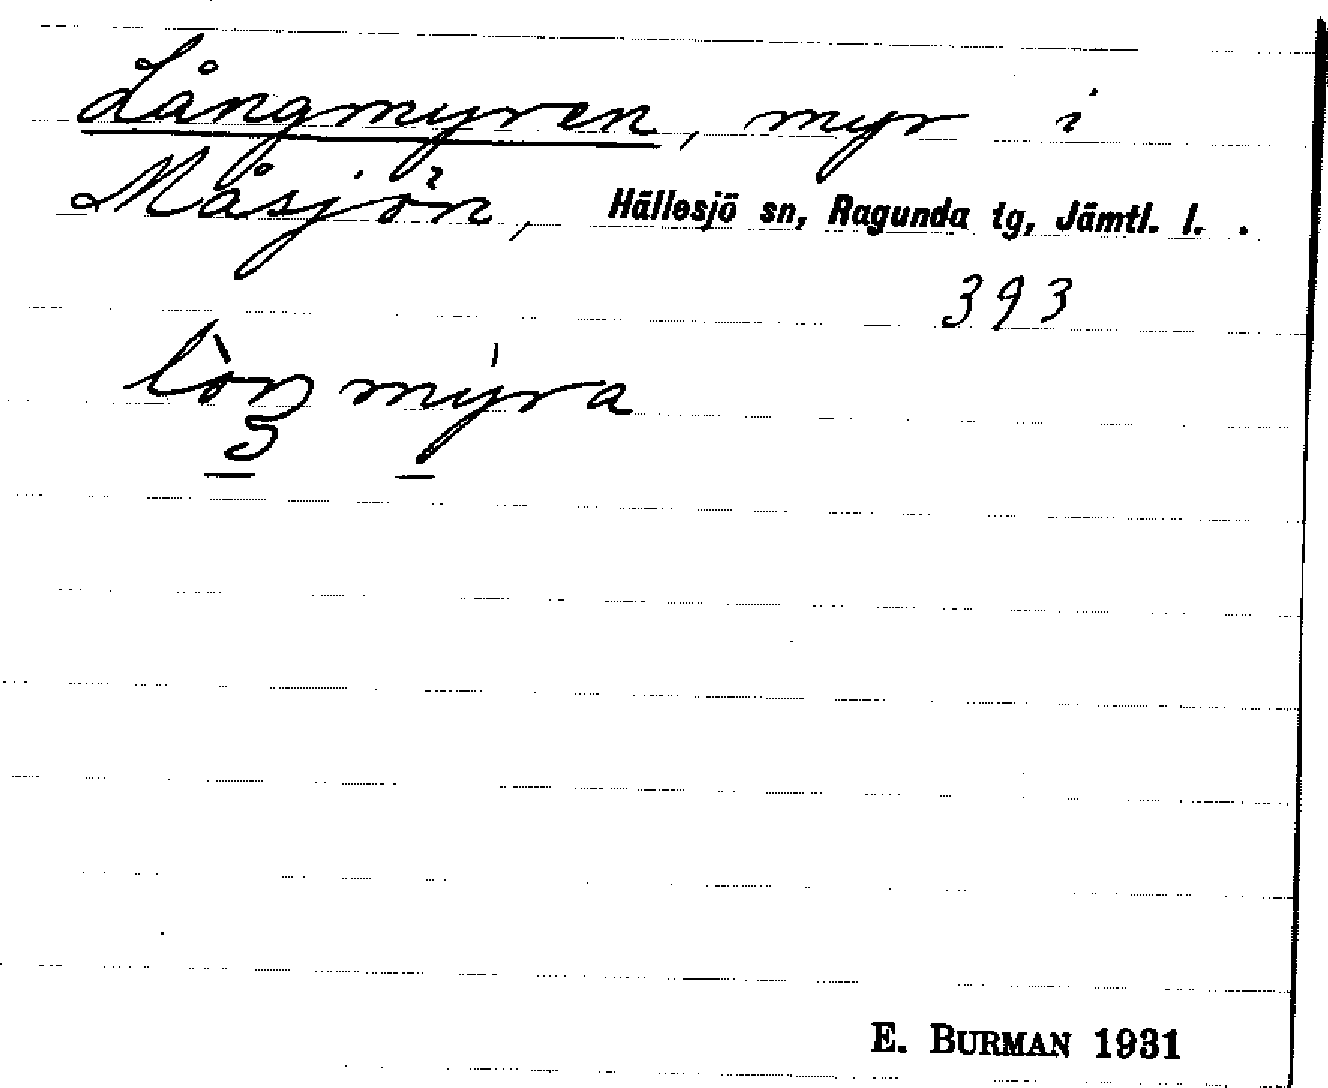 Långmyren, myr i
Måsjön, Hällesjö sn, Ragunda tg, Jämtl. l.
393
lòŋmýra
E. BURMAN 1931